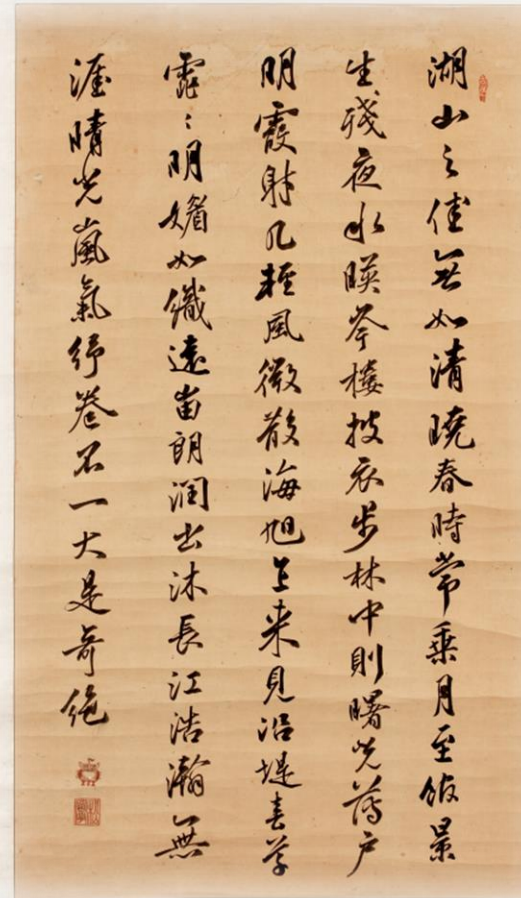 湖山之佳無如清曉春時常乘月至館景
生殘夜水暎岑樓披衣步林中則曙光薄戶
明霞射几輕風微散海旭乍來見沿堤春草
霏〻明媚如織遠峀朗潤出沐長江浩瀚無
涯晴光嵐氣舒卷不一大是奇絕